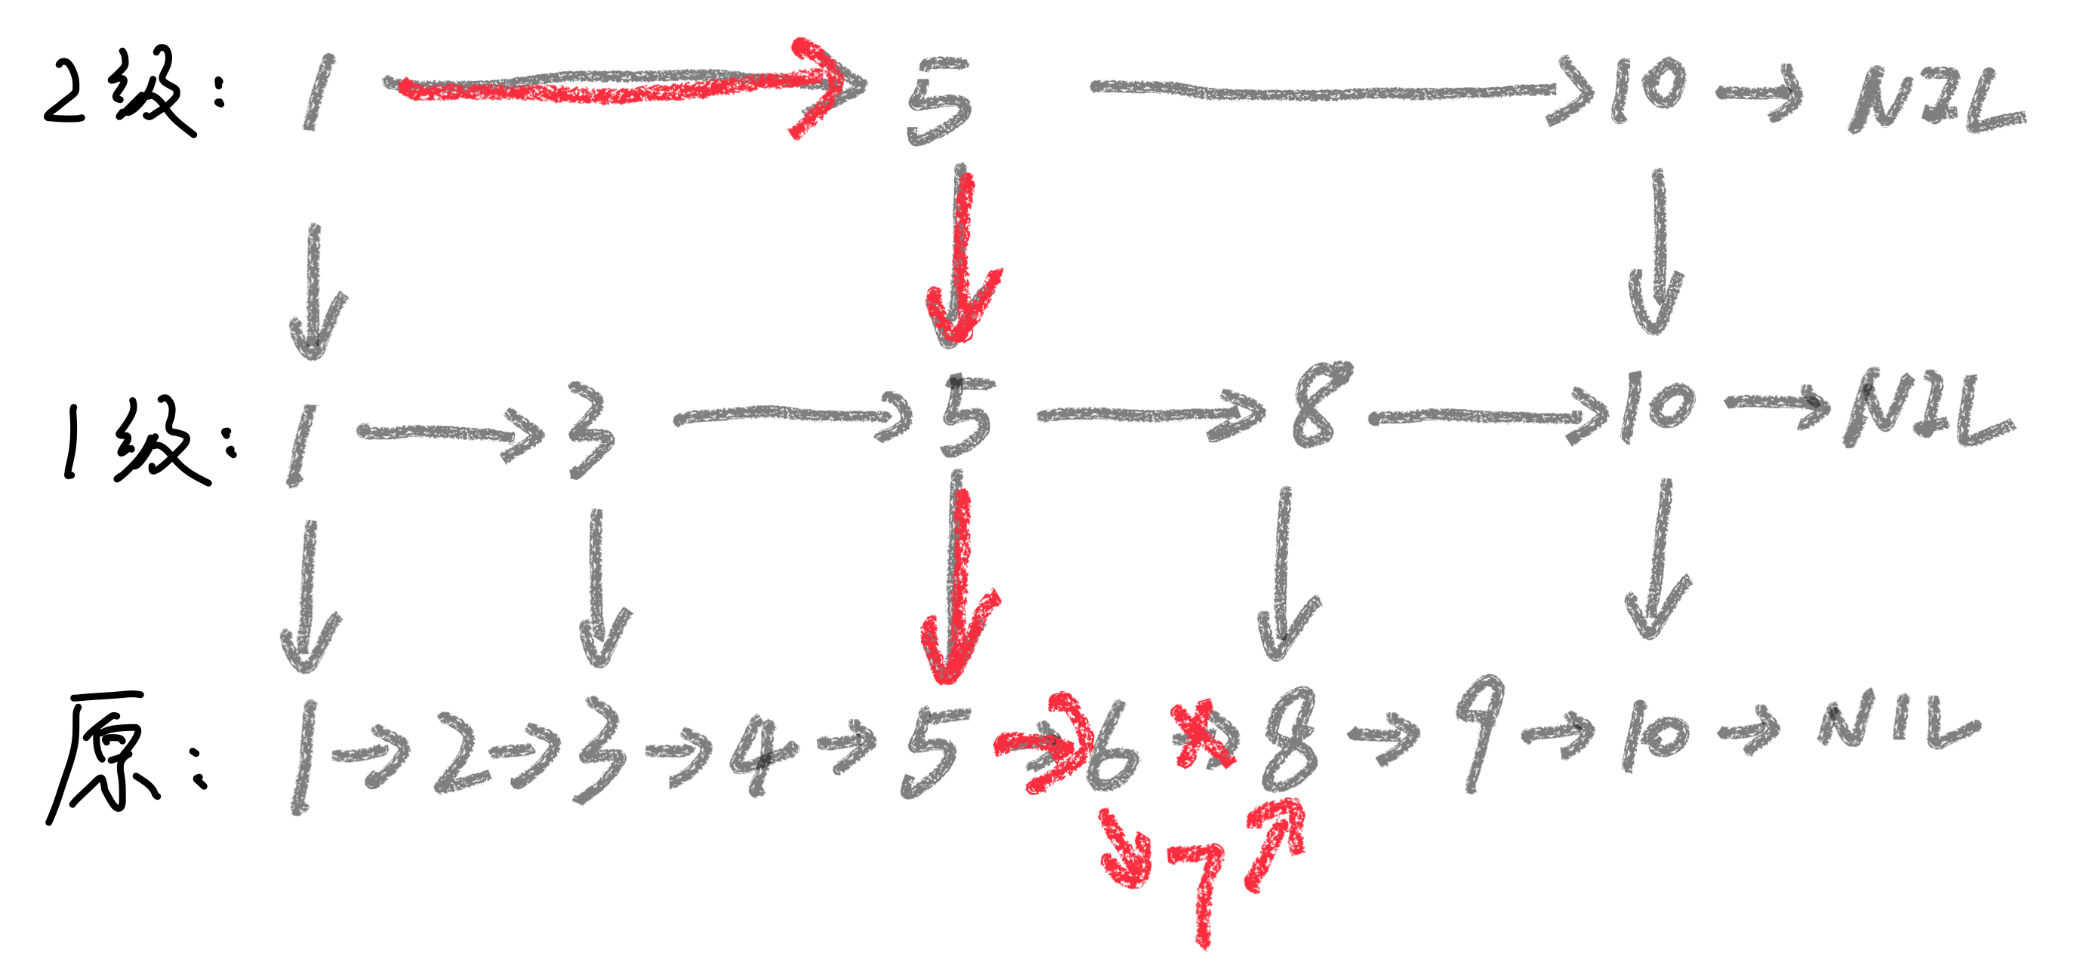 2级: 1 → 5 → 10 → NIL
1级: 1 → 3 → 5 → 8 → 10 → NIL
原: 1 → 2 → 3 → 4 → 5 → 6 → 8 → 9 → 10 → NIL
7